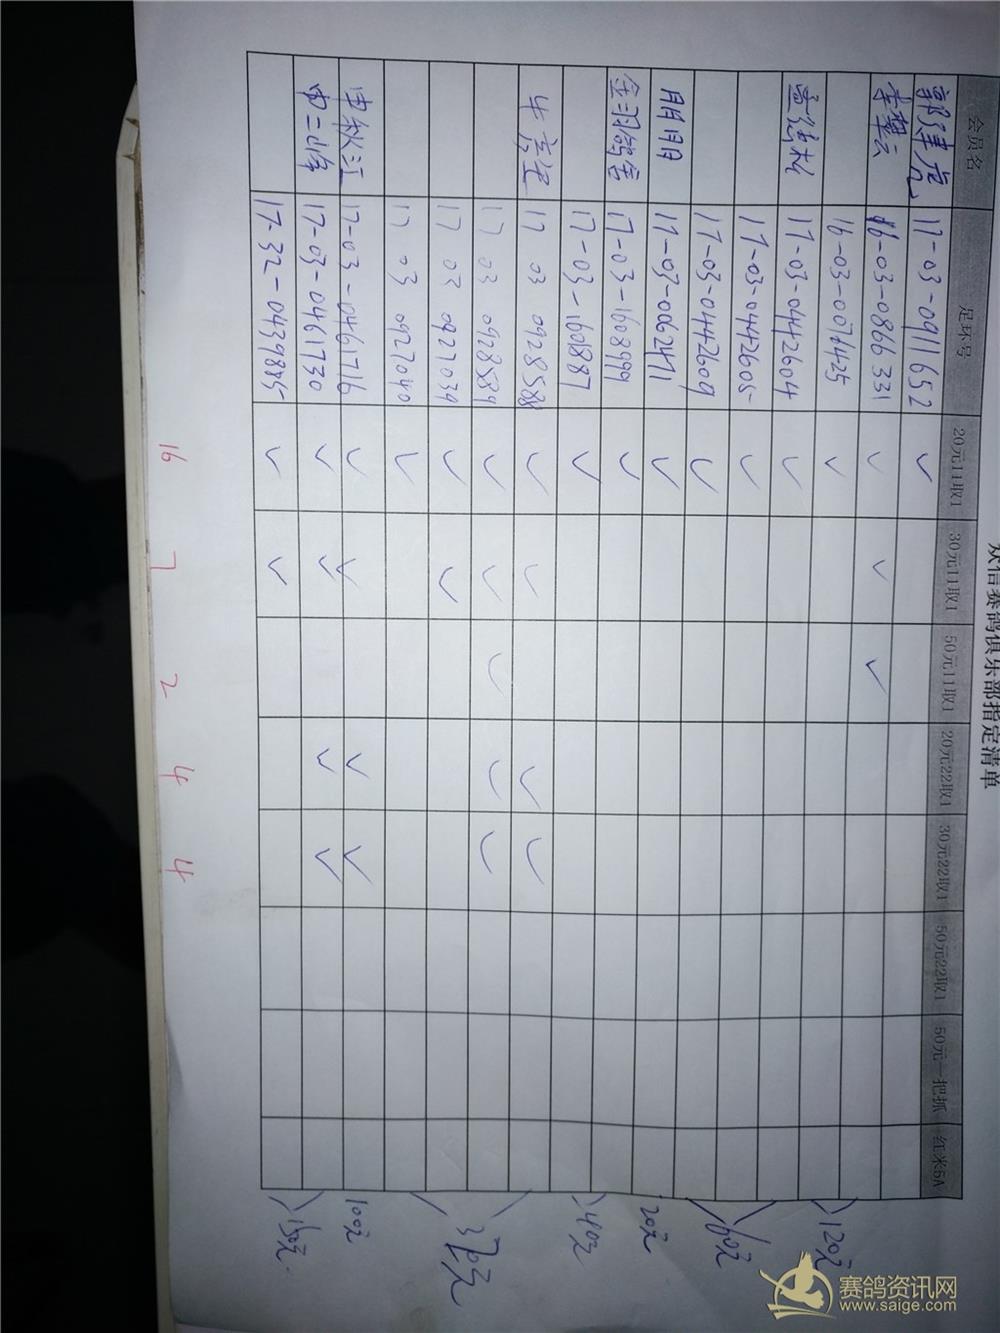 众信赛鸽俱乐部指定清单
会员名 足环号 20元11取1 30元11取1 50元11取1 20元22取1 30元22取1 50元22取1 50元一把抓 红米5A
17-03-0911652 ✓
16-03-0866331 ✓ ✓ ✓ 120元
16-03-0071425 ✓
17-03-0442604 ✓
17-03-0442605 ✓ 60元
17-03-0442609 ✓
明月 17-03-0062471 ✓ 20元
金羽鸽舍 17-03-1608999 ✓ 40元
17-03-1601887 ✓
17 03 0928588 ✓ ✓ ✓ ✓
17 03 0928589 ✓ ✓ ✓ ✓ ✓
17 03 0927039 ✓ ✓
17 03 0927040 ✓
申秋江 17-03-0461716 ✓ ✓ ✓ ✓ 100元
申二峰 17-03-0461730 ✓ ✓ ✓ ✓ 150元
17-32-0439885 ✓ ✓
16 7 2 4 4
赛鸽资讯网
www.saige.com